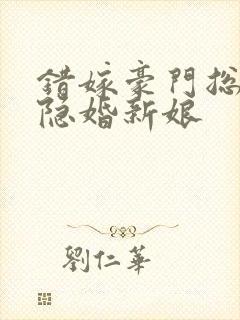 錯嫁豪門总
隐婚新娘
劉仁華